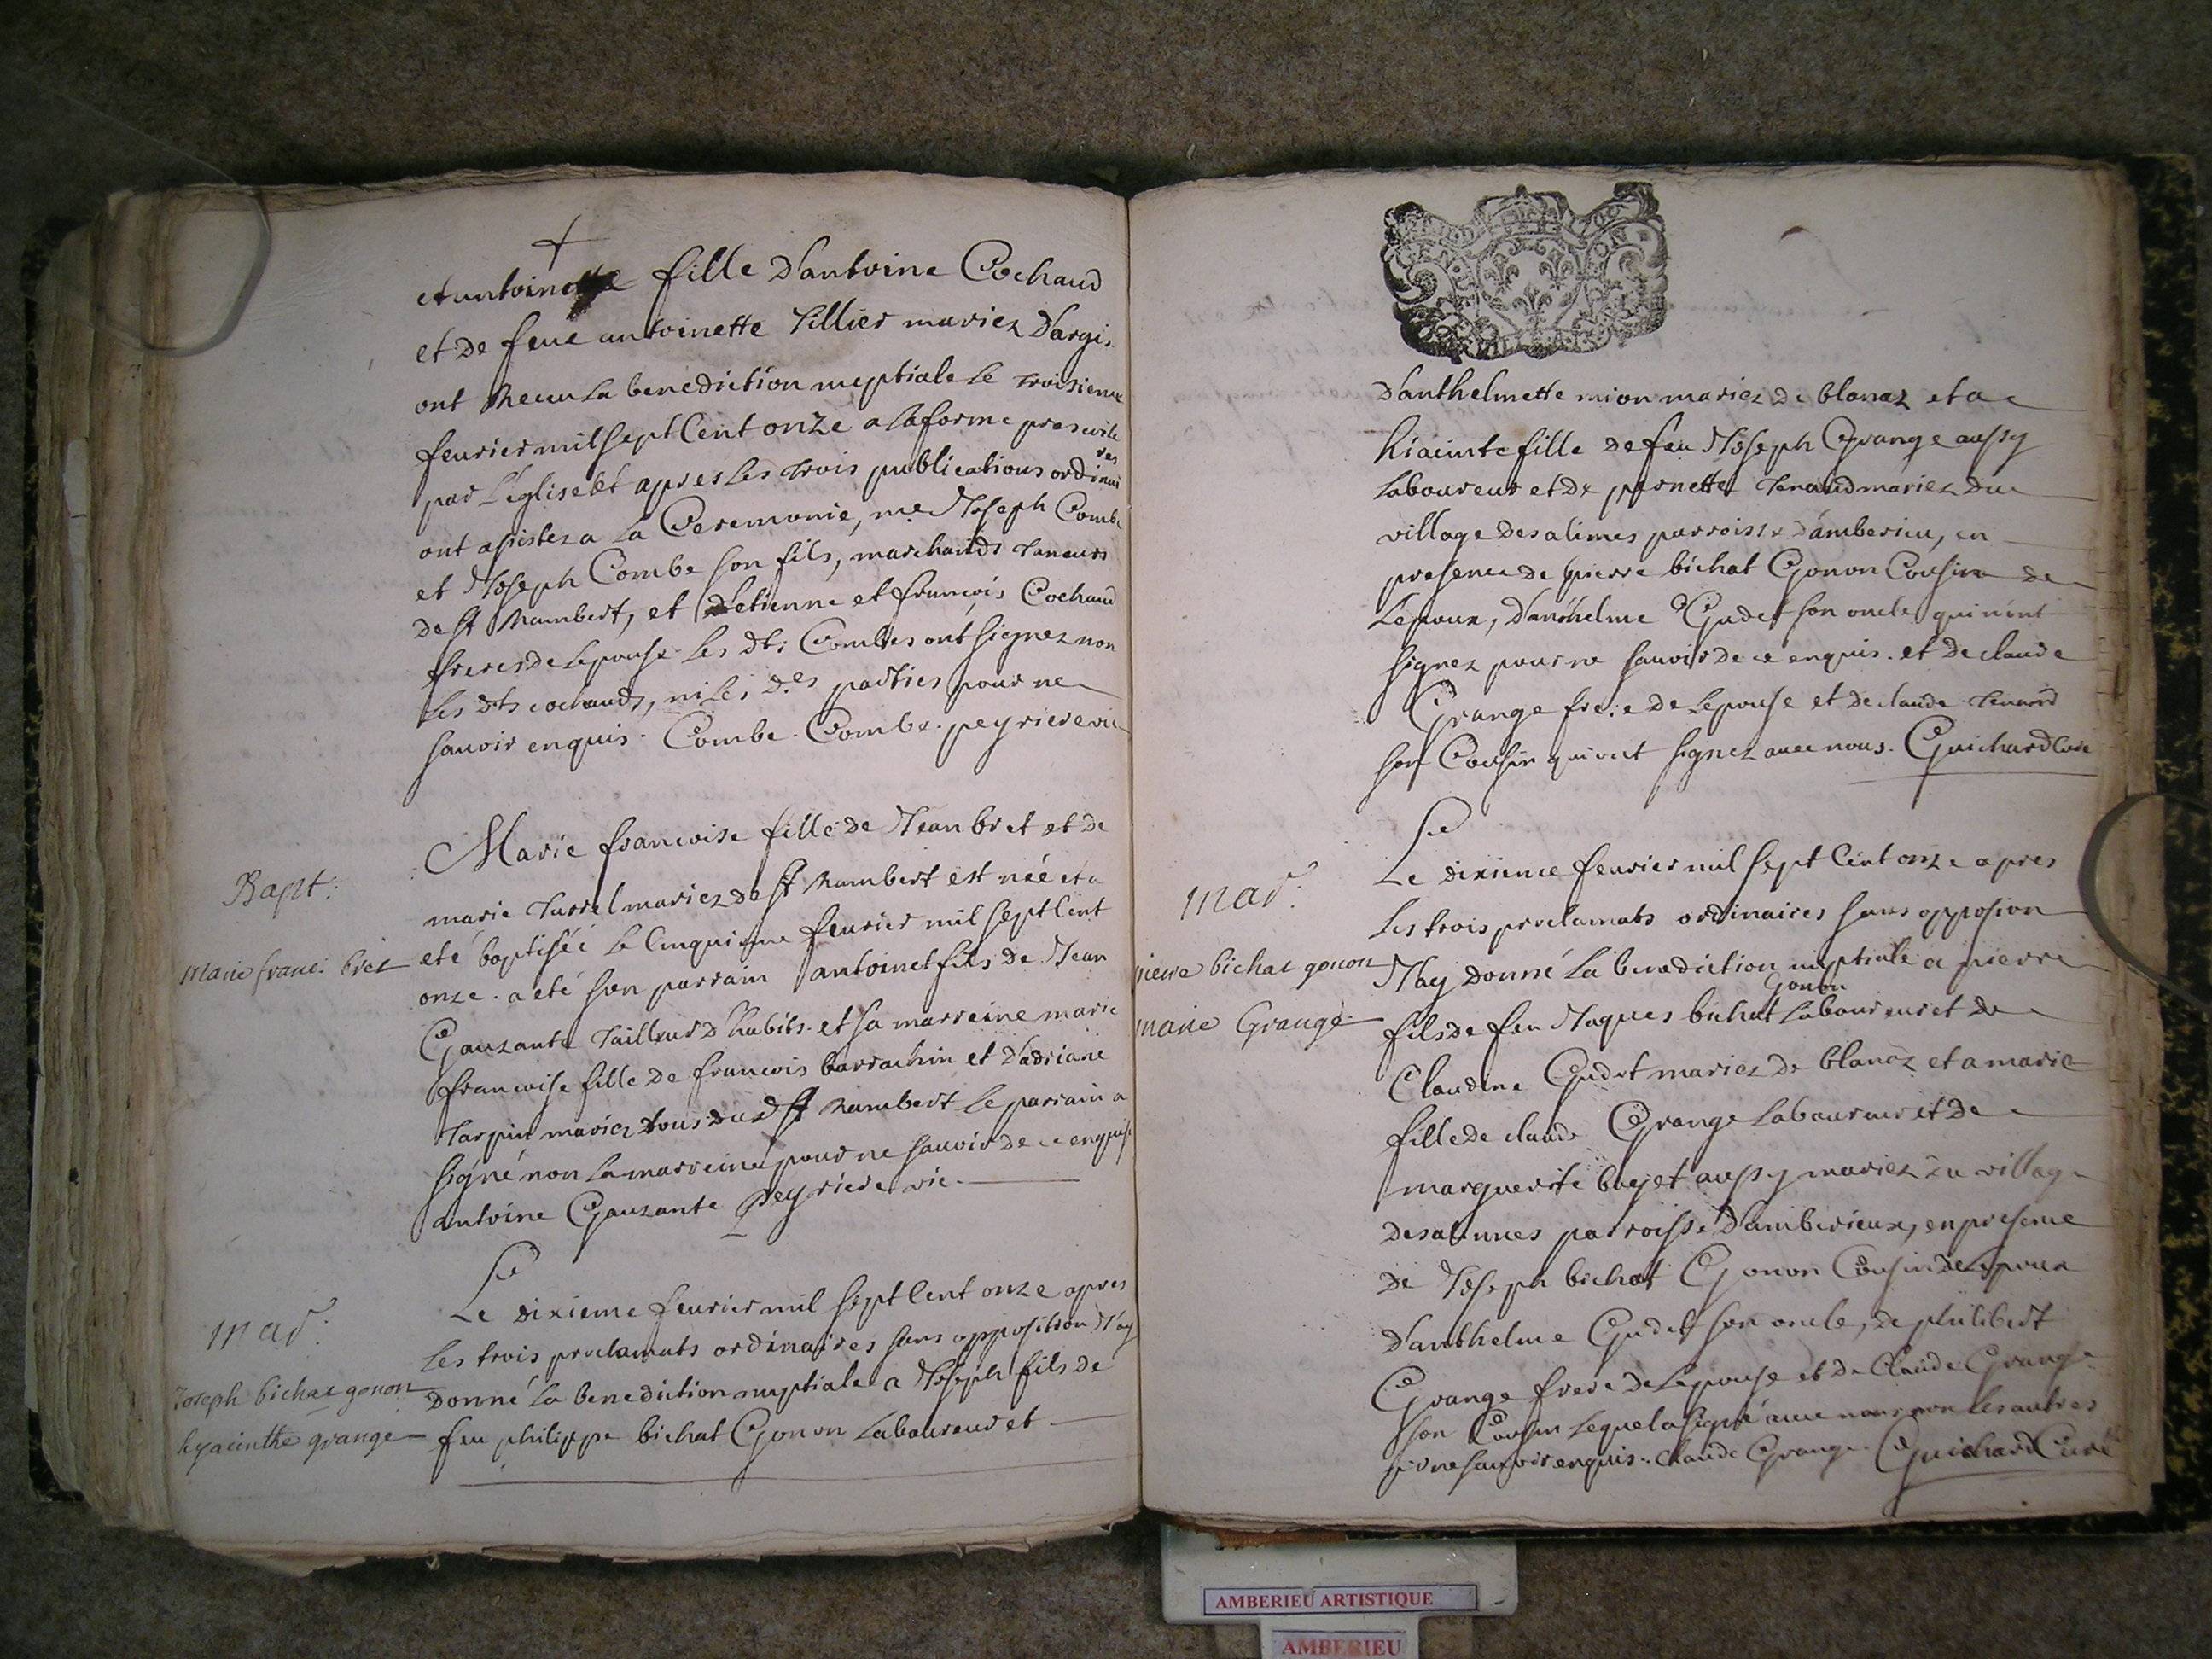 et antoinette fille d'antoine Cochaud
et de feue antoinette Tillier mariez d'argis
ont Receu la benediction nuptiale le troisieme
feurier mil sept Cent onze a la forme prescrite
par l'église et apres les trois publications ordinaires
ont asistez a la Ceremonie, me Joseph Combe
et Joseph Combe son fils, marchands Taneurs
de st Rambert, et d'etienne et françois Cochaud
freres de lepouse les dts Combes ont signez non
les dts cochauds, ni les d.es parties pour ne
sauoir enquis. Combe. Combe. peyriere vic
Bapt:
Marie francoise fille de Jean bret et de
marie Turrel mariez de st Rambert est née et a
marie franc: bret
eté baptiséé le Cinquieme feurier mil sept Cent
onze. a eté son parrain antoine fils de Jean
Gauzante Tailleur d'habits. et sa marreine marie
francoise fille de francois barrachin et d'adriane
Tarpin mariez tous dud st Rambert le parrain a
signé non la marreine pour ne sauoir de ce enquise
antoine Gauzante peyriere vic.
mar:
Le dixieme feurier mil sept Cent onze apres
les trois proclamats ordinaires sans opposition J'ay
Joseph bichat gonon
donné la benediction nuptiale a Joseph fils de
hyacinthe grange
feu philippe bichat Gonon laboureur et
d'anthelmette mion mariez de blanaz et a
hiacinte fille de feu Joseph Grange aussy
laboureur et de pernette Tenand mariez du
village des alimes parroisse d'amberieu, en
presence de pierre bichat Gonon Cousin de
Lepoux, d'anthelme Gudet son oncle qui n'ont
signez pour ne sauoir de ce enquis. et de claude
Grange frere de lepouse et de claude Tenand
son Cousin qui ont signez auec nous. Guichard Curé
mar:
Le dixieme feurier mil sept Cent onze apres
les trois proclamats ordinaires sans opposion
pierre bichat gonon
J'ay donné la benediction nuptiale a pierre
marie Grange
fils de feu Jaques bichat Gonon laboureur et de
Claudine Gudet mariez de blanaz et a marie
fille de claude Grange laboureur et de
marguerite bujet aussy mariez du village
des alimes parroisse d'amberieux, en presence
de Joseph bichat Gonon Cousin de lepoux
d'anthelme Gudet son oncle, de philibert
Grange frere de lepouse et de Claude Grange
son Cousin lequel a signé auec nous non les autres
pr ne sauoir enquis. claude Grange. Guichard Curé
AMBERIEU ARTISTIQUE
AMBERIEU